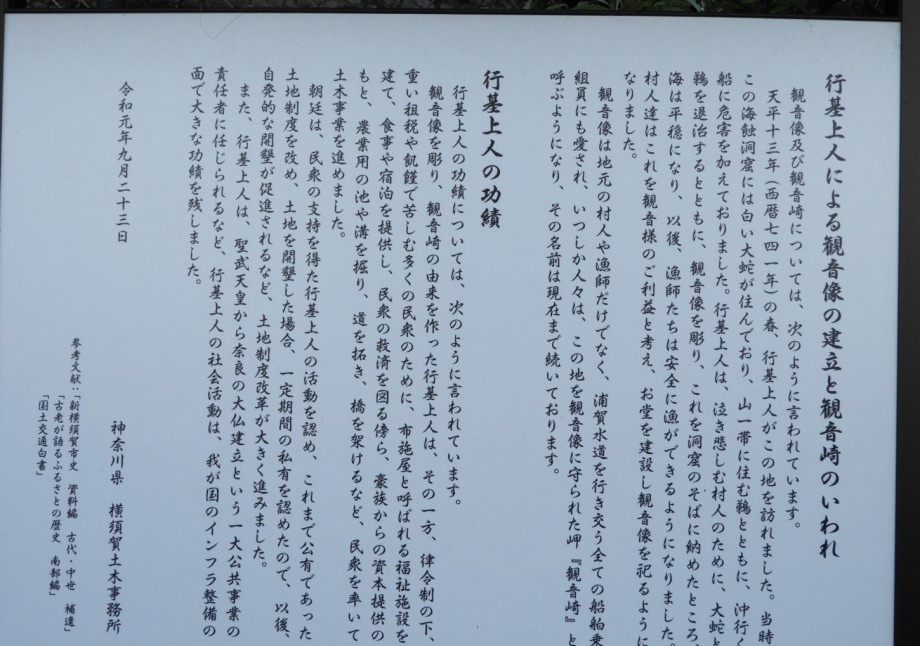 行基上人による観音像の建立と観音崎のいわれ
観音像及び観音崎については、次のように言われています。
天平十三年(西暦七四一年)の春、行基上人がこの地を訪れました。当時
この海蝕洞窟には白い大蛇が住んでおり、山一帯に住む鵺とともに、沖行く
船に危害を加えておりました。行基上人は、泣き悲しむ村人のために、大蛇と
鵺を退治するとともに、観音像を彫り、これを洞窟のそばに納めたところ、
海は平穏になり、以後、漁師たちは安全に漁ができるようになりました。
村人達はこれを観音様のご利益と考え、お堂を建設し観音像を祀るように
なりました。
観音像は地元の村人や漁師だけでなく、浦賀水道を行き交う全ての船舶乗
組員にも愛され、いつしか人々は、この地を観音像に守られた岬『観音崎』と
呼ぶようになり、その名前は現在まで続いております。
行基上人の功績
行基上人の功績については、次のように言われています。
観音像を彫り、観音崎の由来を作った行基上人は、その一方、律令制の下、
重い租税や飢饉で苦しむ多くの民衆のために、布施屋と呼ばれる福祉施設を
建て、食事や宿泊を提供し、民衆の救済を図る傍ら、豪族からの資本提供の
もと、農業用の池や溝を掘り、道を拓き、橋を架けるなど、民衆を率いて
土木事業を進めました。
朝廷は、民衆の支持を得た行基上人の活動を認め、これまで公有であった
土地制度を改め、土地を開墾した場合、一定期間の私有を認めたので、以後、
自発的な開墾が促進されるなど、土地制度改革が大きく進みました。
また、行基上人は、聖武天皇から奈良の大仏建立という一大公共事業の
責任者に任じられるなど、行基上人の社会活動は、我が国のインフラ整備の
面で大きな功績を残しました。
令和元年九月二十三日
神奈川県 横須賀土木事務所
参考文献:「新横須賀市史 資料編 古代・中世 補遺」
「古老が語るふるさとの歴史 南部編」
「国土交通白書」